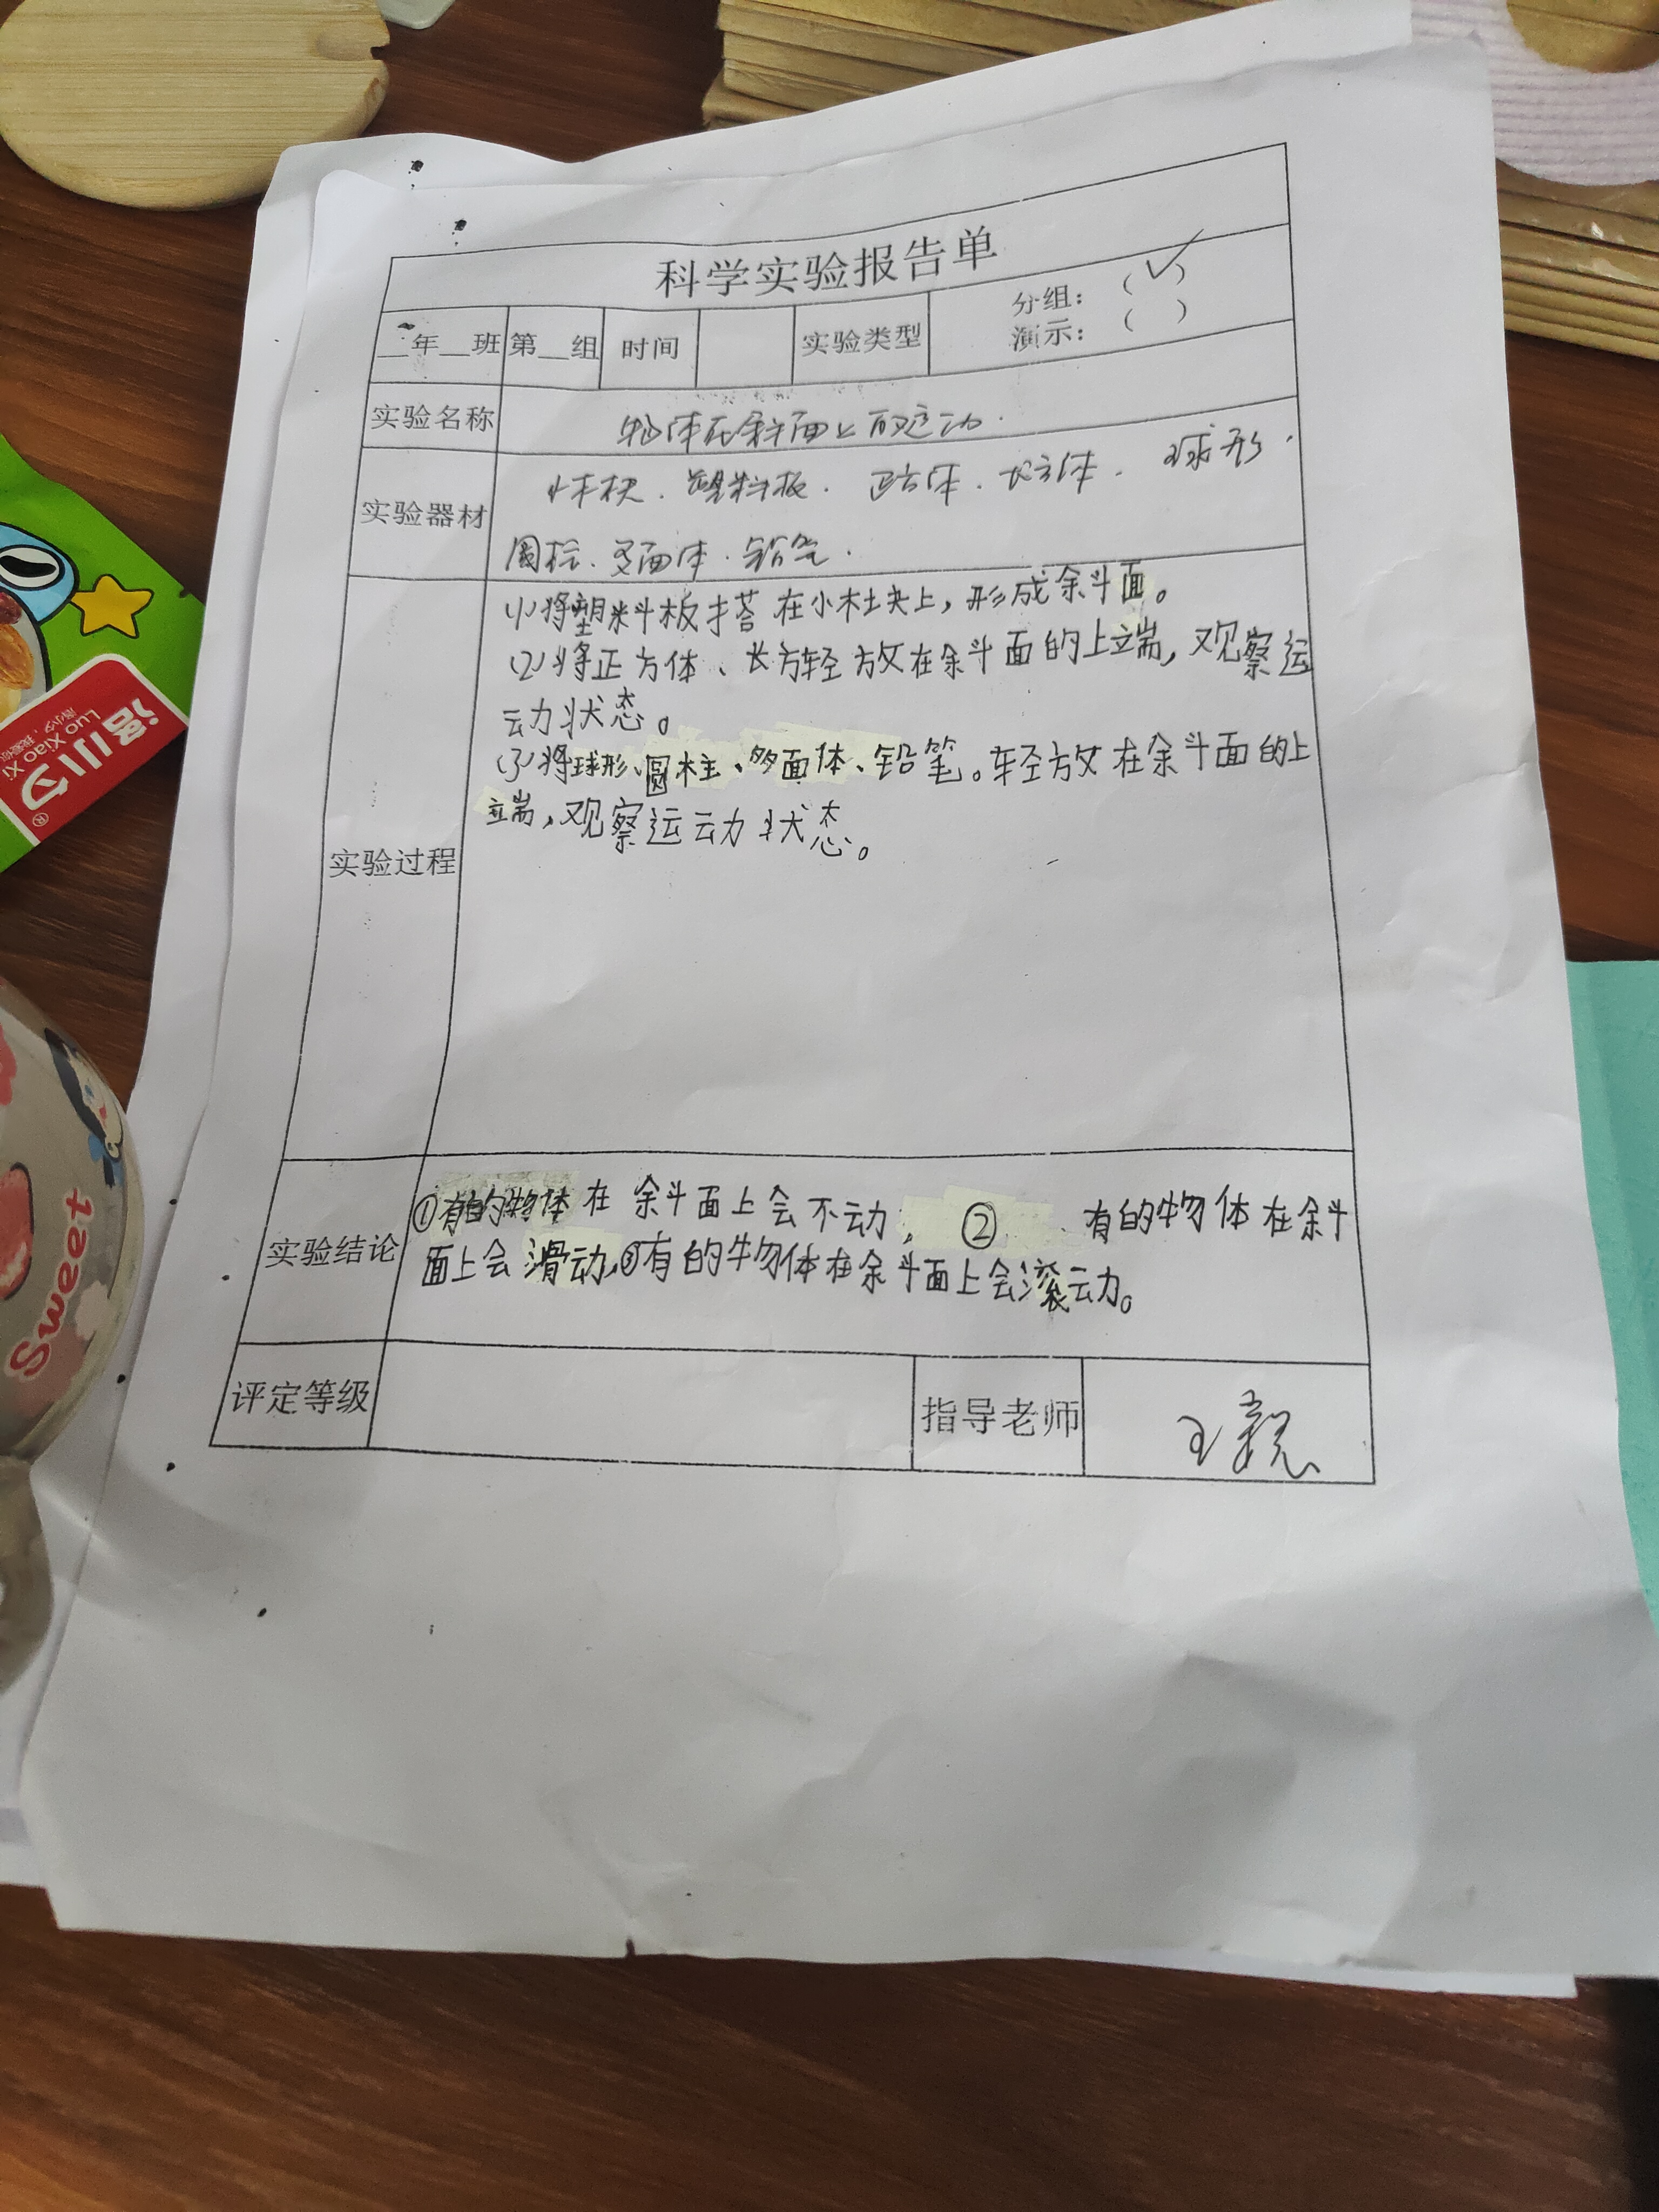 科学实验报告单
__年__班 第__组 时间 实验类型 分组：（✓）
演示：（ ）
实验名称 物体在斜面上的运动.
实验器材 木块. 塑料板. 正方体. 长方体. 球形.
圆柱. 多面体. 铅笔.
实验过程
(1)将塑料板搭在小木块上，形成斜面。
(2)将正方体、长方轻放在斜面的上端，观察运
动状态。
(3)将球形、圆柱、多面体、铅笔。轻放在斜面的上
端，观察运动状态。
实验结论
①有的物体在斜面上会不动； ② 有的物体在斜
面上会滑动，③有的物体在斜面上会滚动。
评定等级 指导老师 王
溜二口
Luo Xiao Xi
®
Sweet